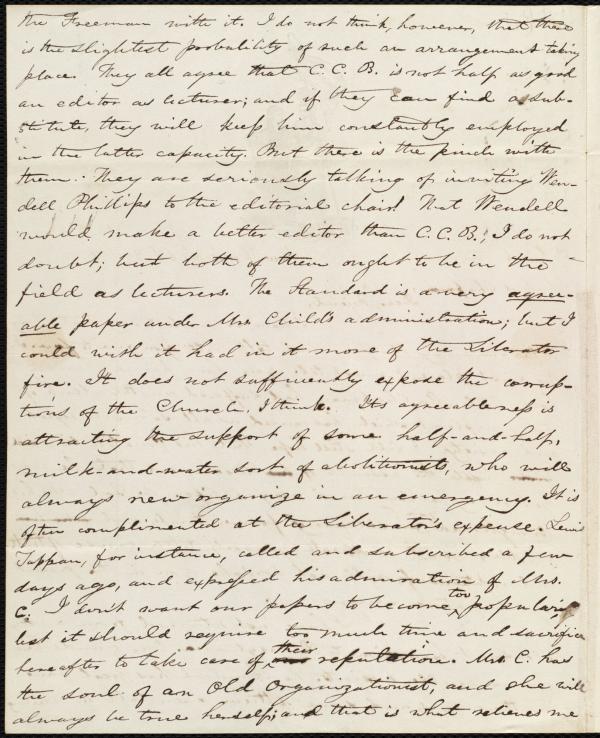 the Freeman with it. I do not think, however, that there
is the slightest probability of such an arrangement taking
place. They all agree that C. C. B. is not half as good
an editor as lecturer; and if they can find a sub-
stitute, they will keep him constantly employed
in the latter capacity. But there is the pinch with
them. They are seriously talking of inviting Wen-
dell Phillips to the editorial chair! That Wendell
would make a better editor than C. C. B., I do not
doubt; but both of them ought to be in the
field as lecturers. The Standard is a very agree-
able paper under Mrs. Child's administration; but I
could wish it had in it more of the Liberator
fire. It does not sufficiently expose the corrup-
tions of the Church, I think. Its agreeableness is
attracting the support of some half-and-half,
milk-and-water sort of abolitionists, who will
always new organize in an emergency. It is
often complimented at the Liberator's expense. Lewis
Tappan, for instance, called and subscribed a few
days ago, and expressed his admiration of Mrs.
C. I don't want our papers to become too popular,
lest it should require too much time and sacrifice
hereafter to take care of their reputation. Mrs. C. has
the soul of an Old Organizationist, and she will
always be true herself; and that is what relieves me